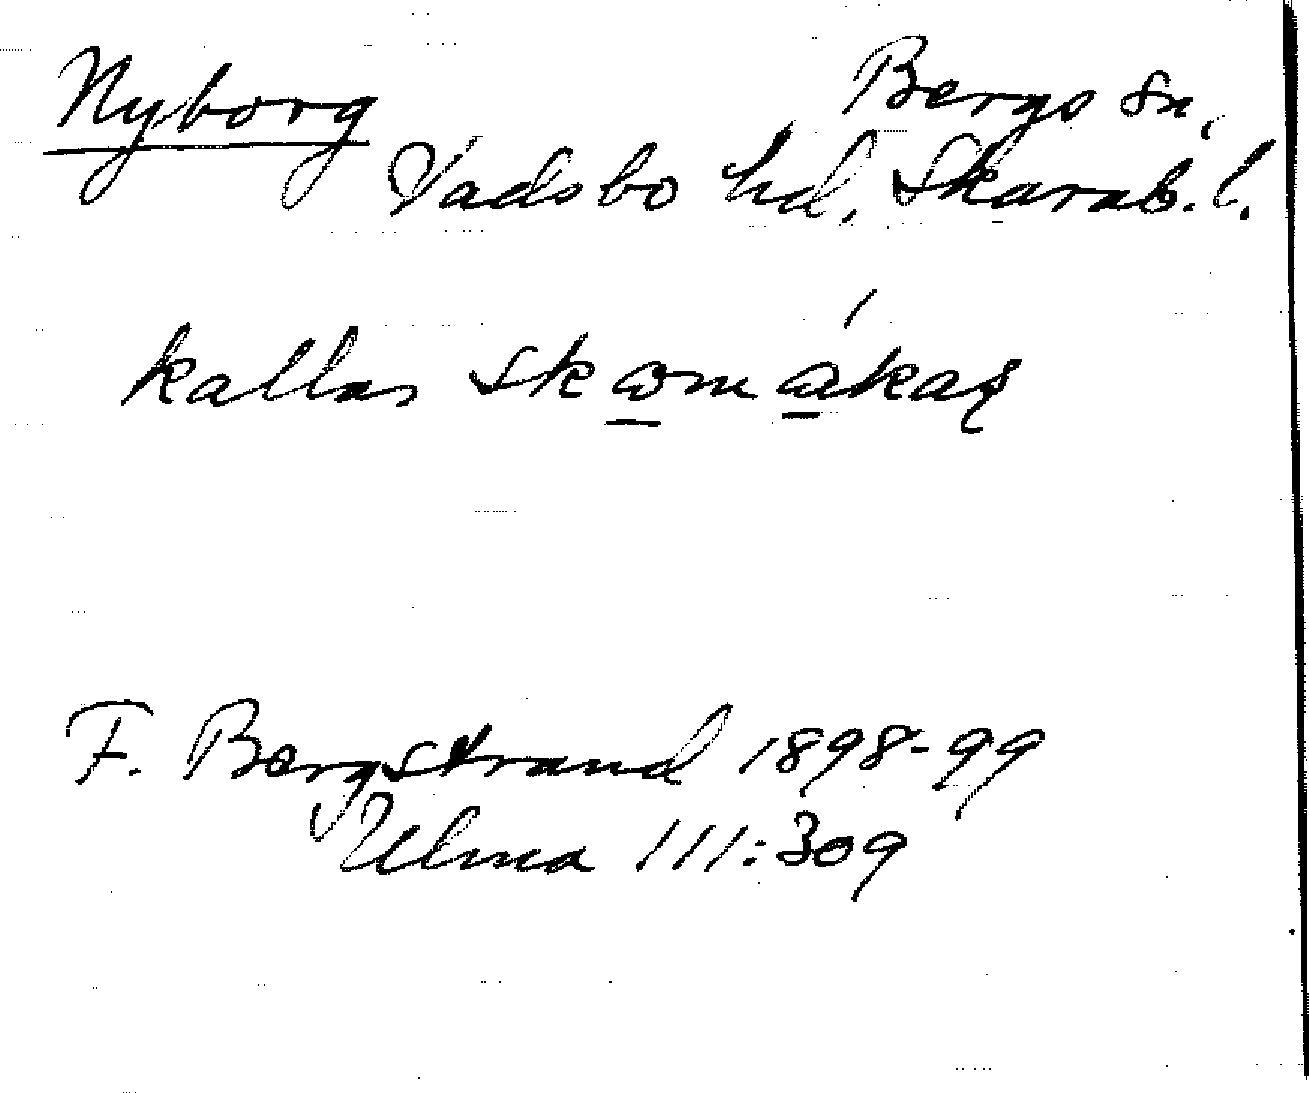 Nyborg Bergs sn,
Vadsbo hd, Skarab. l.
kallas skomákaʂ
F. Bergstrand 1898-99
Ulma 111:309